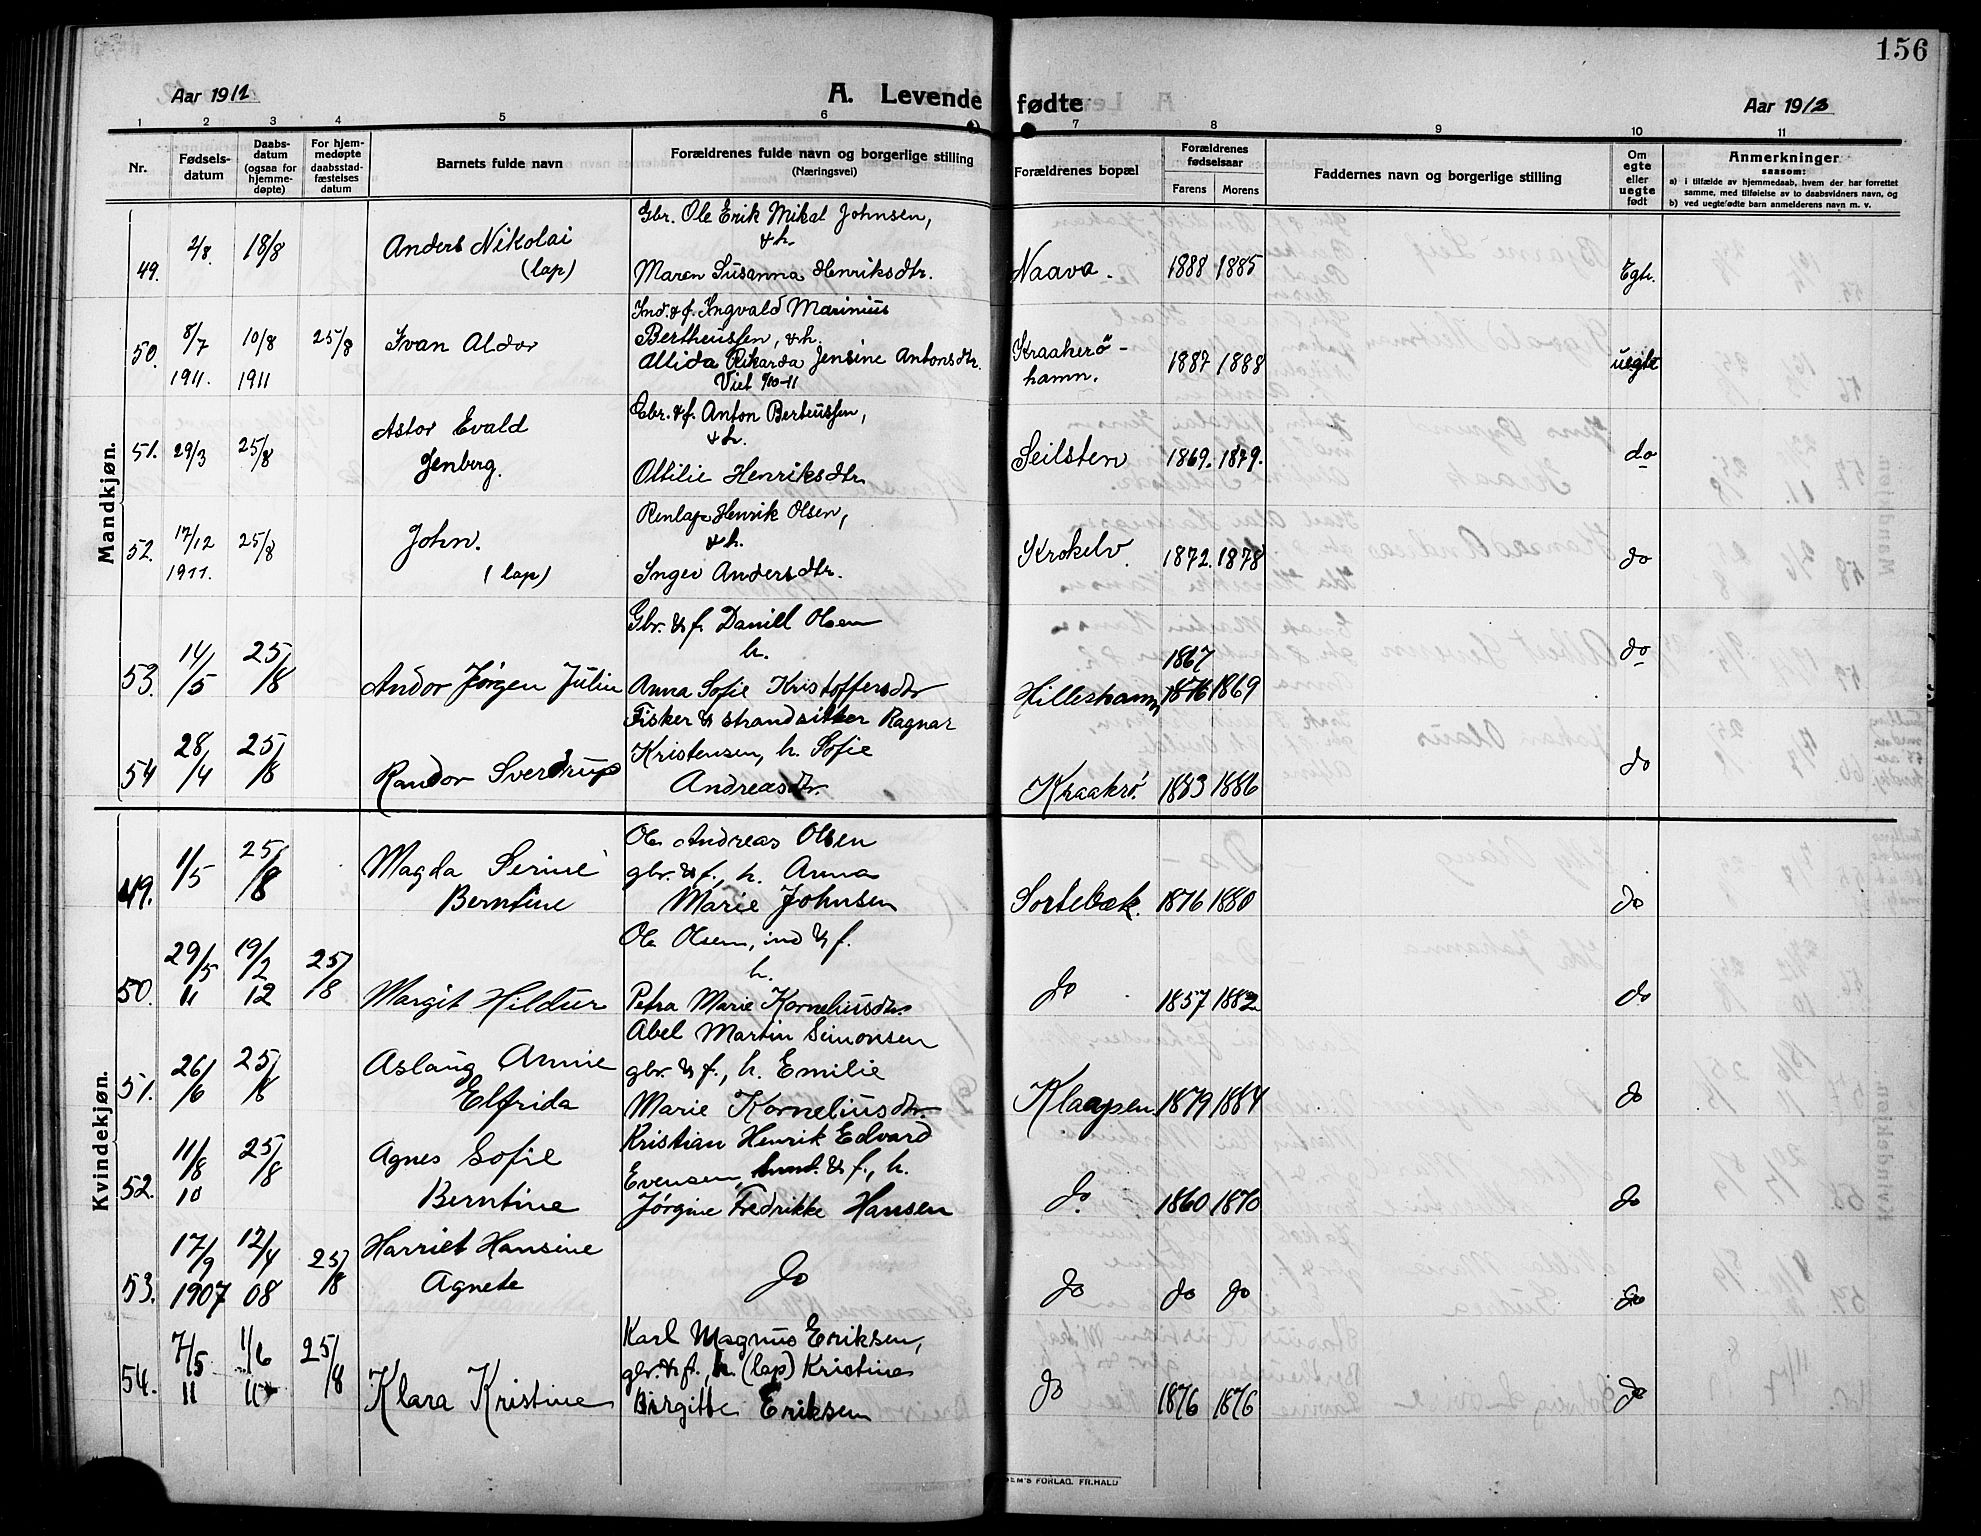 156
Aar 1912
A. Levende fødte
Aar 1912
1 2 3 4 5 6 7 8 9 10 11
Nr.
Fødsels-
datum
Daabs-
datum
(ogsaa for
hjemme-
døpte)
For hjem-
medøpte
daabsstad-
fæstelses
datum
Barnets fulde navn
Forældrenes fulde navn og borgerlige stilling
(Næringsvei)
Forældrenes bopæl
Forældrenes
fødselsaar
Farens Morens
Faddernes navn og borgerlige stilling
Om
egte
eller
uegte
født
Anmerkninger
saasom:
a) i tilfælde av hjemmedaab, hvem der har forrettet
samme, med tilføielse av to daabsvidners navn, og
b) ved uegtefødte barn anmelderens navn m. v.
Mandkjøn.
Gbr. Ole Erik Mikal Johnsen,
49. 2/8. 18/8 Anders Nikolai & h.
(lap) Maren Susanna Henriksdtr. Naava. 1888 1885 Egte.
Ind. & f. Ingvald Marinius
50. 8/7 10/8 25/8 Ivan Aldor Bertheussen, & h.
1911. 1911 Allida Rikarda Jensine Antonsdtr. Kraakerø-
hamn. 1887 1888 uegte
Viet 1/10-11
Gbr. & f. Anton Berteussen,
51. 29/3 25/8 Astor Evald & h.
Jenberg. Ottilie Henriksdtr Seilsten 1869. 1879. do
Renlap Henrik Olsen,
52. 17/12 25/8 John. & h.
1911. (lap) Inger Andersdtr. Krokelv 1872. 1878 do
Gbr. & f. Daniel Olsen
h.
53. 14/5 25/8 Andor Jørgen Julin Anna Sofie Kristoffersdtr Hilleshamn 1867
1876 1869 do
Fisker & strandsitter Ragnar
54 28/4 25/8 Randor Sverdrup Kristensen, h. Sofie
Andreasdtr. Kraakrø. 1883 1886 do
Kvindekjøn.
Ole Andreas Olsen
49. 1/5 25/8 Magda Serine gbr. & f., h. Anna
Berntine Marie Johnsen Sortebæk. 1876 1880 do
Ole Olsen, ind & f.
h.
50. 29/5 11 19/2 12 25/8 Margit Hildur Petra Marie Korneliusdtr. do 1857 1882 do
Abel Martin Simonsen
51. 26/6 25/8 Aslaug Annie gbr. & f., h. Emilie
Elfrida Marie Korneliusdtr. Klaapen. 1879 1884 do
Kristian Henrik Edvard
52. 11/8 10 25/8 Agnes Sofie Evensen, & f., h.
Berntine Jørgine Fredrikke Hansen do 1860 1870 do
53. 17/9 1907 12/4 08 25/8 Harriet Hansine
Agnete do do do do do
Karl Magnus Eriksen,
54. 7/5 11 1/6 11 25/8 Klara Kristine gbr. & f., h. (lap) Kristine
Birgitte Eriksen do 1876 1876 do
EM'S FORLAG. FR.HALD